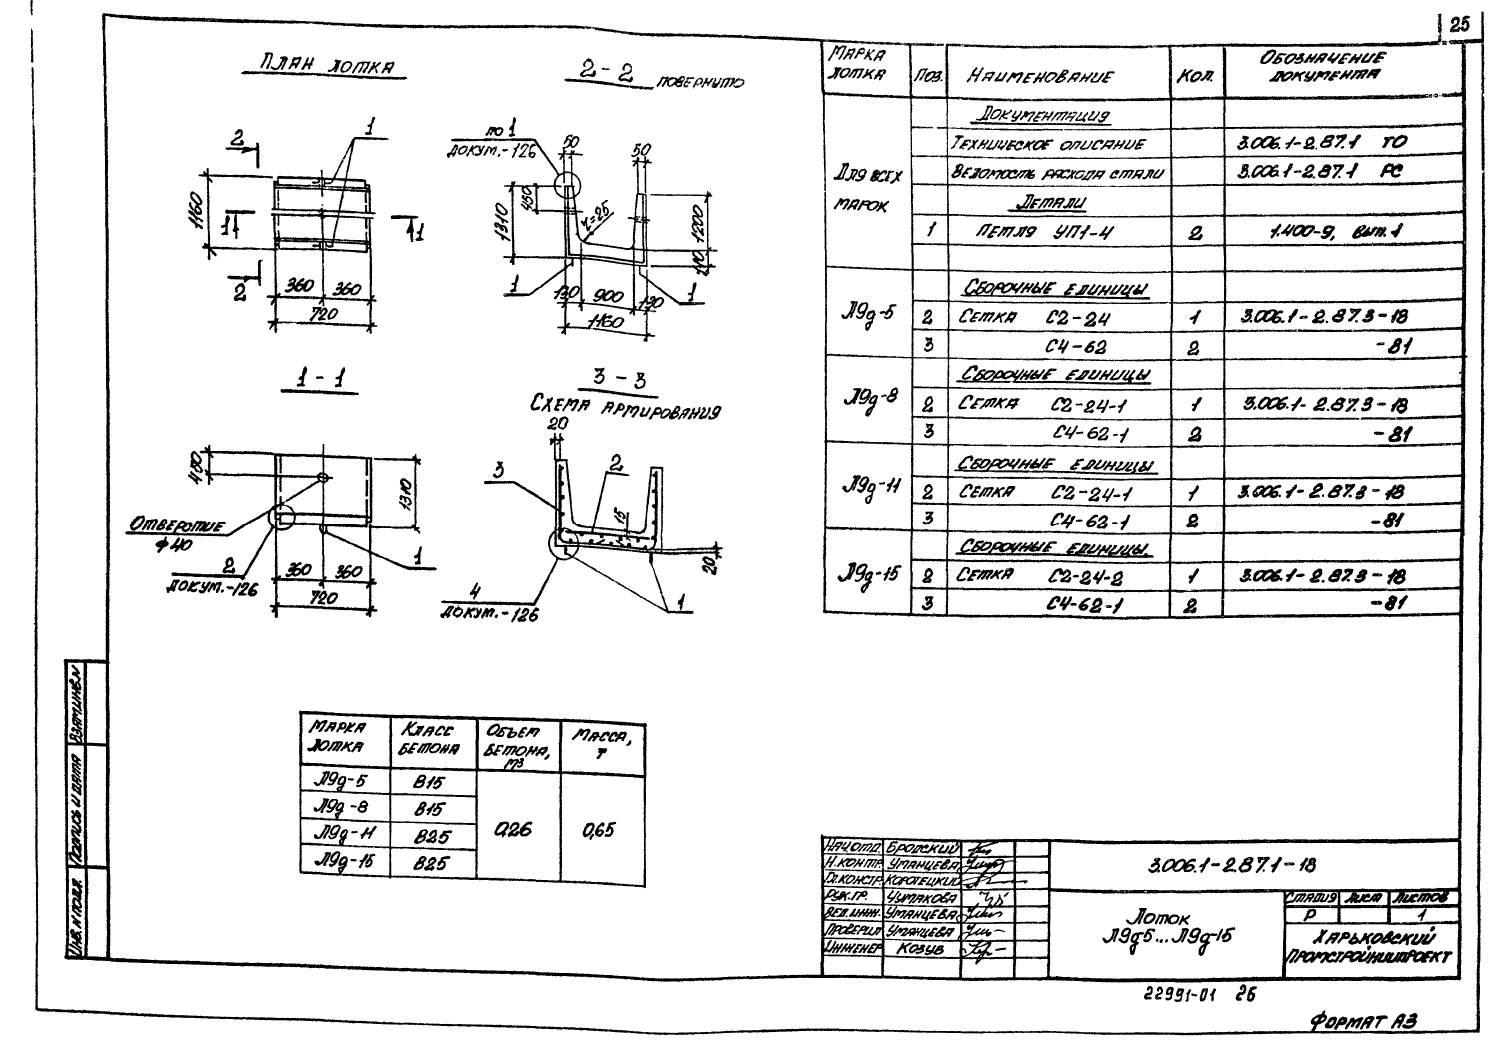 25
План лотка
2
1
1160
1
1
2
360
360
720
2-2 повернуто
по 1
докум.-126
50
50
450
1310
r=25
1200
110
1
1
130
900
130
1160
1-1
480
1310
Отверстие
ф40
2
докум.-126
1
360
360
720
3-3
Схема армирования
20
3
2
15
20
4
докум.-126
1
Марка лотка
Поз.
Наименование
Кол.
Обозначение документа
Для всех марок
Документация
Техническое описание 3.006.1-2.87.1 ТО
Ведомость расхода стали 3.006.1-2.87.1 РС
Детали
1 Петля УП1-4 2 1.400-9, вып.1
Л9д-5
Сборочные единицы
2 Сетка С2-24 1 3.006.1-2.87.3-18
3 С4-62 2 -81
Л9д-8
Сборочные единицы
2 Сетка С2-24-1 1 3.006.1-2.87.3-18
3 С4-62-1 2 -81
Л9д-11
Сборочные единицы
2 Сетка С2-24-1 1 3.006.1-2.87.3-18
3 С4-62-1 2 -81
Л9д-15
Сборочные единицы
2 Сетка С2-24-2 1 3.006.1-2.87.3-18
3 С4-62-1 2 -81
Марка лотка
Класс бетона
Объем бетона, м3
Масса, т
Л9д-5 В15
Л9д-8 В15
Л9д-11 В25
Л9д-15 В25
0,26 0,65
Взам.инв.N
Подпись и дата
Инв. N подл.
Нач.отд. Бродский
Н.контр. Уманцева
Гл.констр. Коротецкий
Рук.гр. Чумакова
Вед.инж. Уманцева
Проверил Уманцева
Инженер Козуб
3.006.1-2.87.1-18
Лоток
Л9д-5...Л9д-15
Стадия Лист Листов
Р 1
Харьковский
Промстройниипроект
22991-01 26
Формат А3